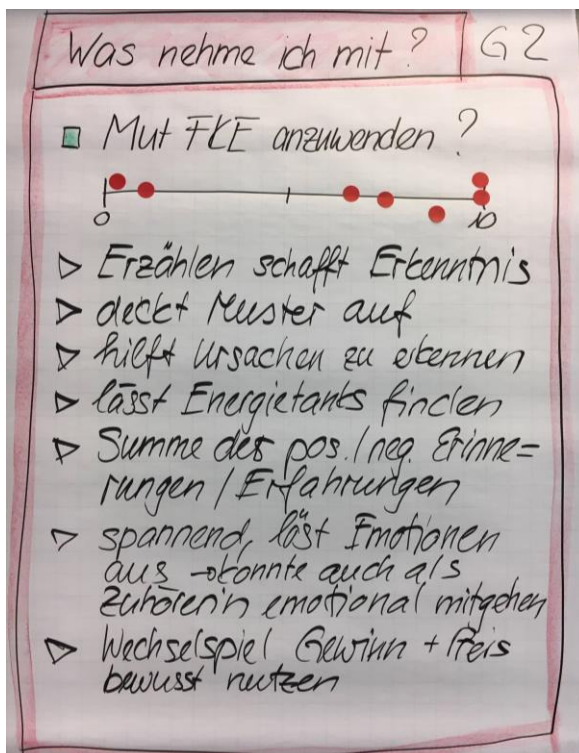 Was nehme ich mit? G2
Mut FKE anzuwenden?
0 10
Erzählen schafft Erkenntnis
deckt Muster auf
hilft Ursachen zu erkennen
lässt Energietanks finden
Summe der pos. / neg. Erinne=
rungen / Erfahrungen
spannend, löst Emotionen
aus → konnte auch als
Zuhörerin emotional mitgehen
Wechselspiel Gewinn + Preis
bewusst nutzen